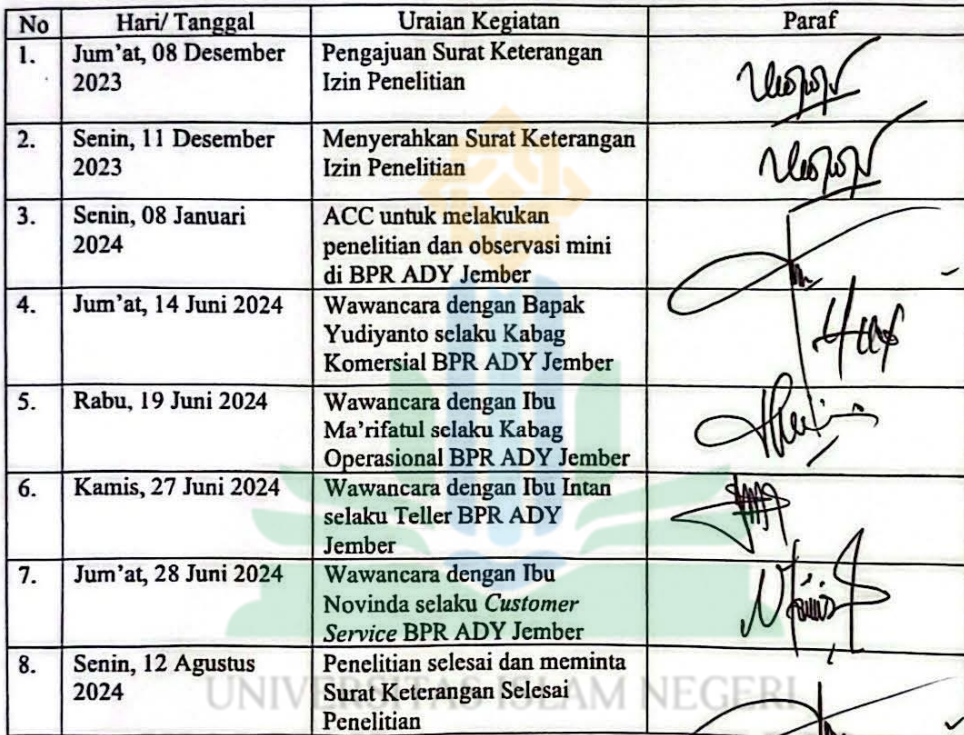 No Hari/ Tanggal Uraian Kegiatan Paraf
1. Jum'at, 08 Desember Pengajuan Surat Keterangan
2023 Izin Penelitian
2. Senin, 11 Desember Menyerahkan Surat Keterangan
2023 Izin Penelitian
3. Senin, 08 Januari ACC untuk melakukan
2024 penelitian dan observasi mini
di BPR ADY Jember
4. Jum'at, 14 Juni 2024 Wawancara dengan Bapak
Yudiyanto selaku Kabag
Komersial BPR ADY Jember
5. Rabu, 19 Juni 2024 Wawancara dengan Ibu
Ma'rifatul selaku Kabag
Operasional BPR ADY Jember
6. Kamis, 27 Juni 2024 Wawancara dengan Ibu Intan
selaku Teller BPR ADY
Jember
7. Jum'at, 28 Juni 2024 Wawancara dengan Ibu
Novinda selaku Customer
Service BPR ADY Jember
8. Senin, 12 Agustus Penelitian selesai dan meminta
2024 Surat Keterangan Selesai
Penelitian
UNIVERSITAS ISLAM NEGERI